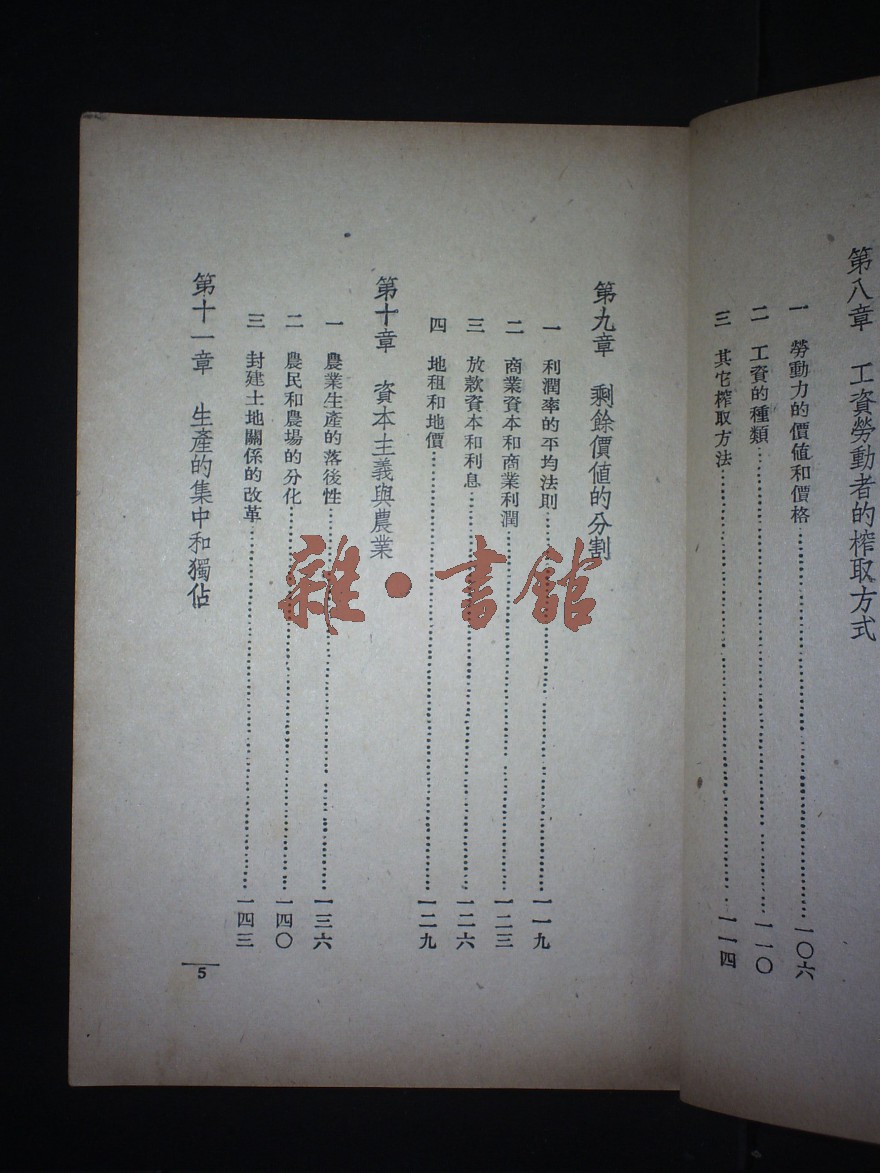 第八章　工資勞動者的榨取方式
一　勞動力的價値和價格……一〇六
二　工資的種類……一一〇
三　其它榨取方法……一一四
第九章　剩餘價値的分割
一　利潤率的平均法則……一一九
二　商業資本和商業利潤……一二三
三　放款資本和利息……一二六
四　地租和地價……一二九
第十章　資本主義與農業
一　農業生產的落後性……一三六
二　農民和農場的分化……一四〇
三　封建土地關係的改革……一四三
第十一章　生產的集中和獨佔
5
雜·書館